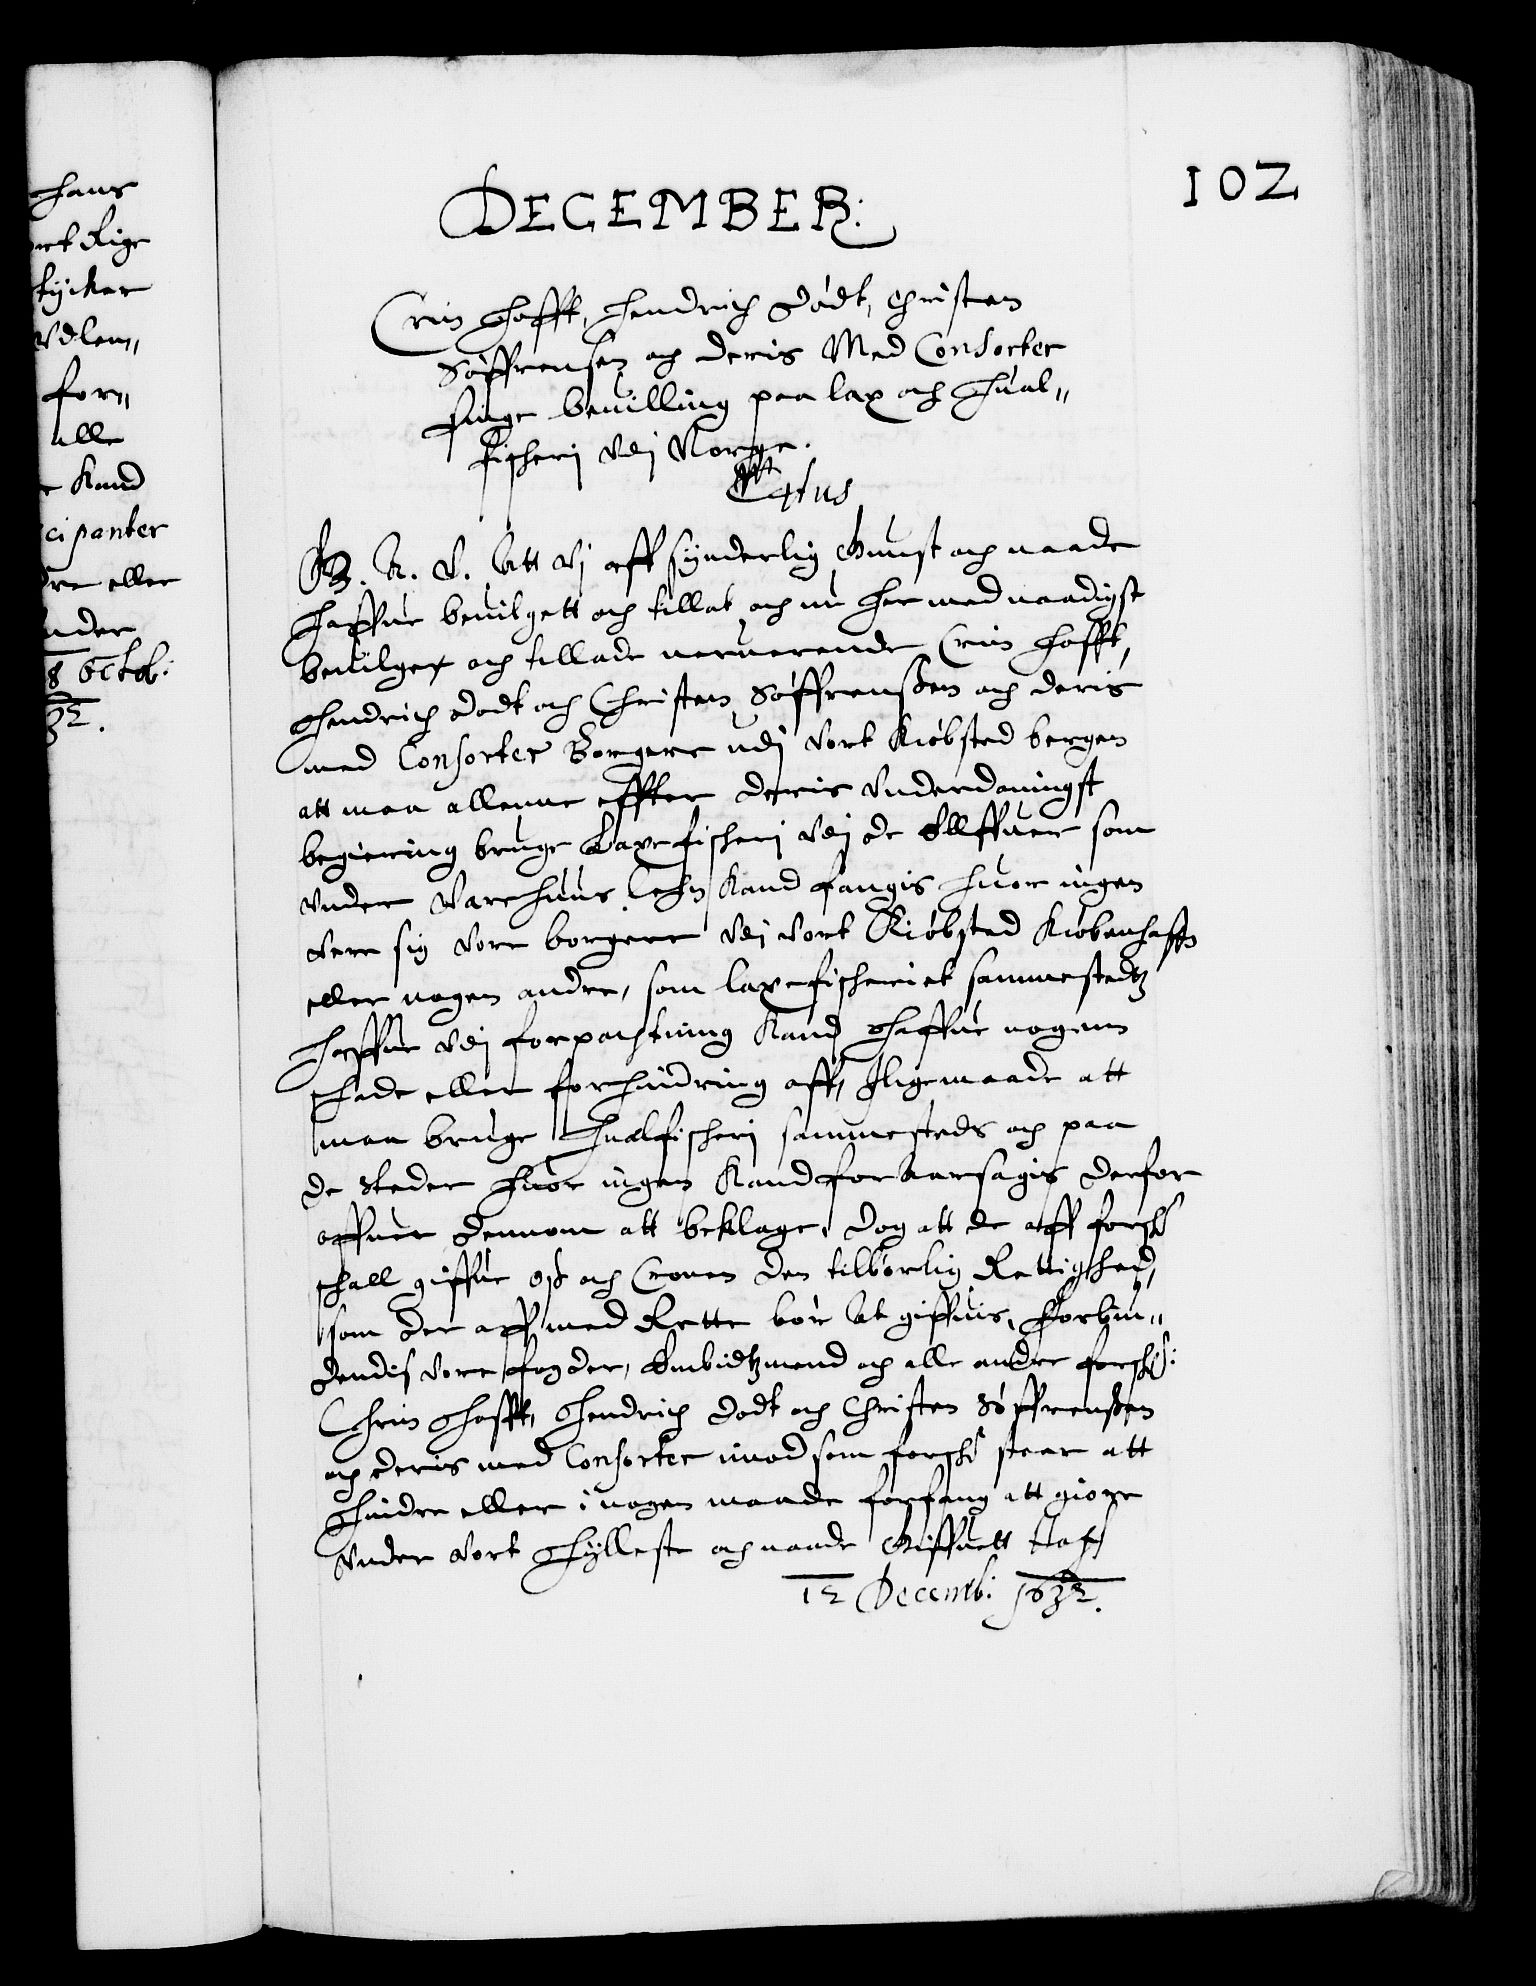 102
DECEMBER:
Crin Hofft, Hendrich Dødt, Christen
Søffrensen och deris Med Consorter
finge beuilling paa lax och Hual-
fischerj vdj Norge.
Ctus
G. A. V. Att Vj aff synderlig Gunst och naade
haffue beuilgett och tillat, och nu her med naadigst
beuilger och tillade neruerende Crin Hofft,
Hendrich Dodt och Christen Søffrensen och deris
med Consorter Borgere udj vort Kiøbsted bergen
att maa allenne effter deris vnderdanigst
begiering bruge Laxefischerj vdj de Ellffuer som
vnder Warehuus Lehn kand fangis huor ingen
vere sig vore borgere vdj vort Kiøbsted Kiøbenhaffn
eller nogen andre, som laxefischeriet sammestedtz
haffue vdj forpachtning kand haffue nogenn
schade eller forhindring aff, Iligemaade att
maa bruge Hualfischerj sammesteds och paa
de steder huor ingen kand foraarsagis derfor
offuer dennom att beklage, dog att de aff forschr
schall giffue oss och Cronen den tilbørlig Rettighed,
som der aff med Rette bør At giffuis, Forbiu-
dendis vore fogder, Embidtzmend och alle andre forschr:
Chrin Hofft, Hendrich Dodt och Christen Søffrensen
och deris med Consorter imod som forschr staar att
hindre eller i nogen maade forfang att giøre
vnder vort Hylleste och naade Giffuett Hafn
12 Decemb: 1632.
hans
ort Rige
tycker
vdlen-
for-
alle
e Kand
cipanter
dre eller
under
8 Octob:
32.